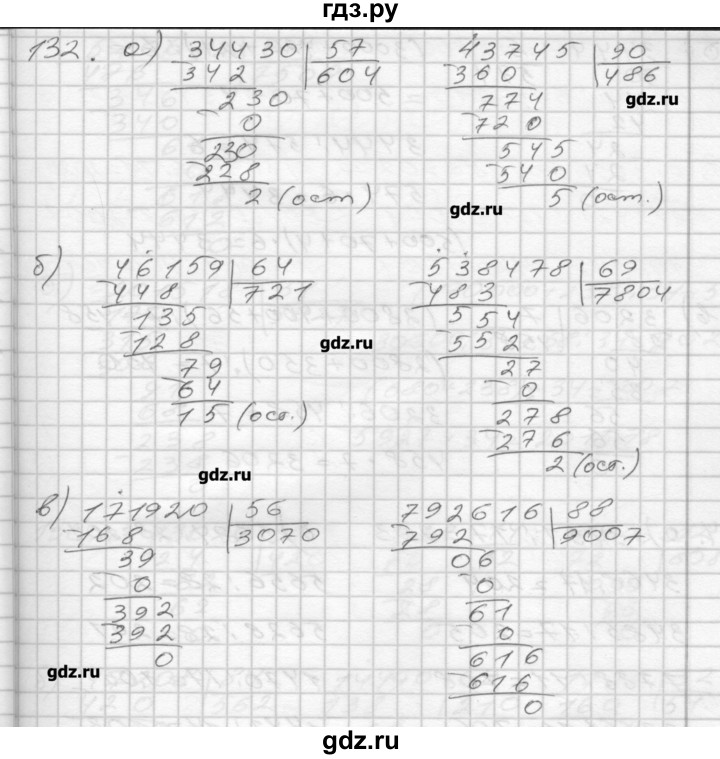 гдз.ру
132. а) 34430 | 57
342 604
230
0
230
228
2 (ост)
43745 | 90
360 486
774
720
545
540
5 (ост.)
gdz.ru
gdz.ru
б) 46159 | 64
448 721
135
128
79
64
15 (ост.)
538478 | 69
483 7804
554
552
27
0
278
276
2 (ост.)
gdz.ru
gdz.ru
в) 171920 | 56
168 3070
39
0
392
392
0
792616 | 88
792 9007
06
0
61
0
616
616
0
gdz.ru
gdz.ru